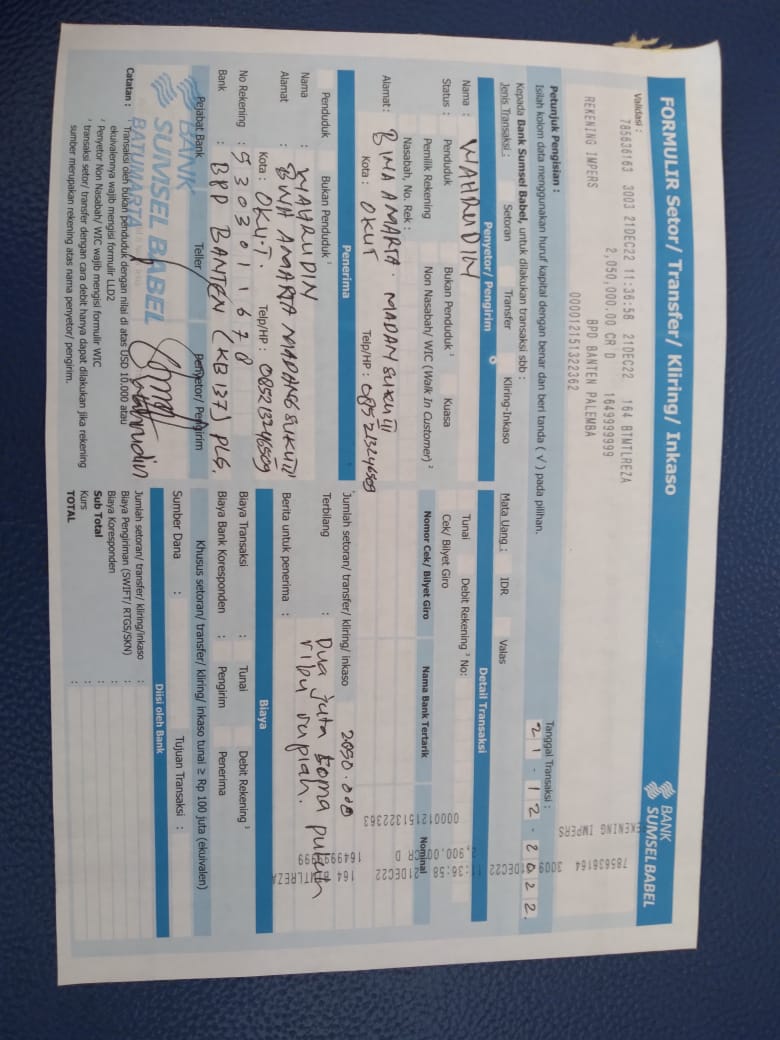 FORMULIR Setor/ Transfer/ Kliring/ Inkaso
BANK
SUMSEL BABEL
Validasi :
785636163 3003 21DEC22 11:36:58 21DEC22 164 BTMTLREZA
2,050,000.00 CR D 1649999999
REKENING IMPERS BPD BANTEN PALEMBA
000012151322362
785636164 3009 21DEC22 11:36:58 21DEC22 164 BTMTLREZA
2,900.00 CR D 1649999999
REKENING IMPERS
000012151322363
Petunjuk Pengisian :
Isilah kolom data menggunakan huruf kapital dengan benar dan beri tanda ( √ ) pada pilihan.
Tanggal Transaksi :
21-12-2022
Kepada Bank Sumsel Babel, untuk dilakukan transaksi sbb :
Jenis Transaksi : Setoran Transfer Kliring-Inkaso Mata Uang : IDR Valas
Penyetor/ Pengirim
Nama : WAHRUDIN
Status : Penduduk Bukan Penduduk ¹ Kuasa
Pemilik Rekening Non Nasabah/ WIC (Walk In Customer) ²
Nasabah, No. Rek :
Alamat : BINA AMARTA. MADANG SUKU III
Kota : OKUT Telp/HP : 085213246509
Detail Transaksi
Tunai Debit Rekening ³ No:
Cek/ Bilyet Giro
Nomor Cek/ Bilyet Giro Nama Bank Tertarik Nominal
Penerima
Penduduk Bukan Penduduk ¹
Nama : WAHRUDIN
Alamat : BINA AMARTA MADANG SUKU III
Kota : OKU.T. Telp/HP : 085213246509
No Rekening : 5303011678
Bank : BPD BANTEN (KB 137) PLG.
Jumlah setoran/ transfer/ kliring/ inkaso 2050.000
Terbilang : Dua juta Lima puluh
ribu rupiah.
Berita untuk penerima :
Biaya
Biaya Transaksi : Tunai Debit Rekening ³
Biaya Bank Koresponden : Pengirim Penerima
Khusus setoran/ transfer/ kliring/ inkaso tunai ≥ Rp 100 juta (ekuivalen)
Sumber Dana : Tujuan Transaksi :
Pejabat Bank Teller Penyetor/ Pengirim
BANK
SUMSEL BABEL
BATUMARTA
Wahrudin
Diisi oleh Bank
Jumlah setoran/ transfer/ kliring/inkaso :
Biaya Pengiriman (SWIFT/ RTGS/SKN) :
Biaya Koresponden :
Sub Total :
Kurs :
TOTAL :
Catatan : ¹ Transaksi oleh bukan penduduk dengan nilai di atas USD 10.000 atau
ekuivalennya wajib mengisi formulir LLD2
² Penyetor Non Nasabah/ WIC wajib mengisi formulir WIC
³ transaksi setor/ transfer dengan cara debit hanya dapat dilakukan jika rekening
sumber merupakan rekening atas nama penyetor/ pengirim.